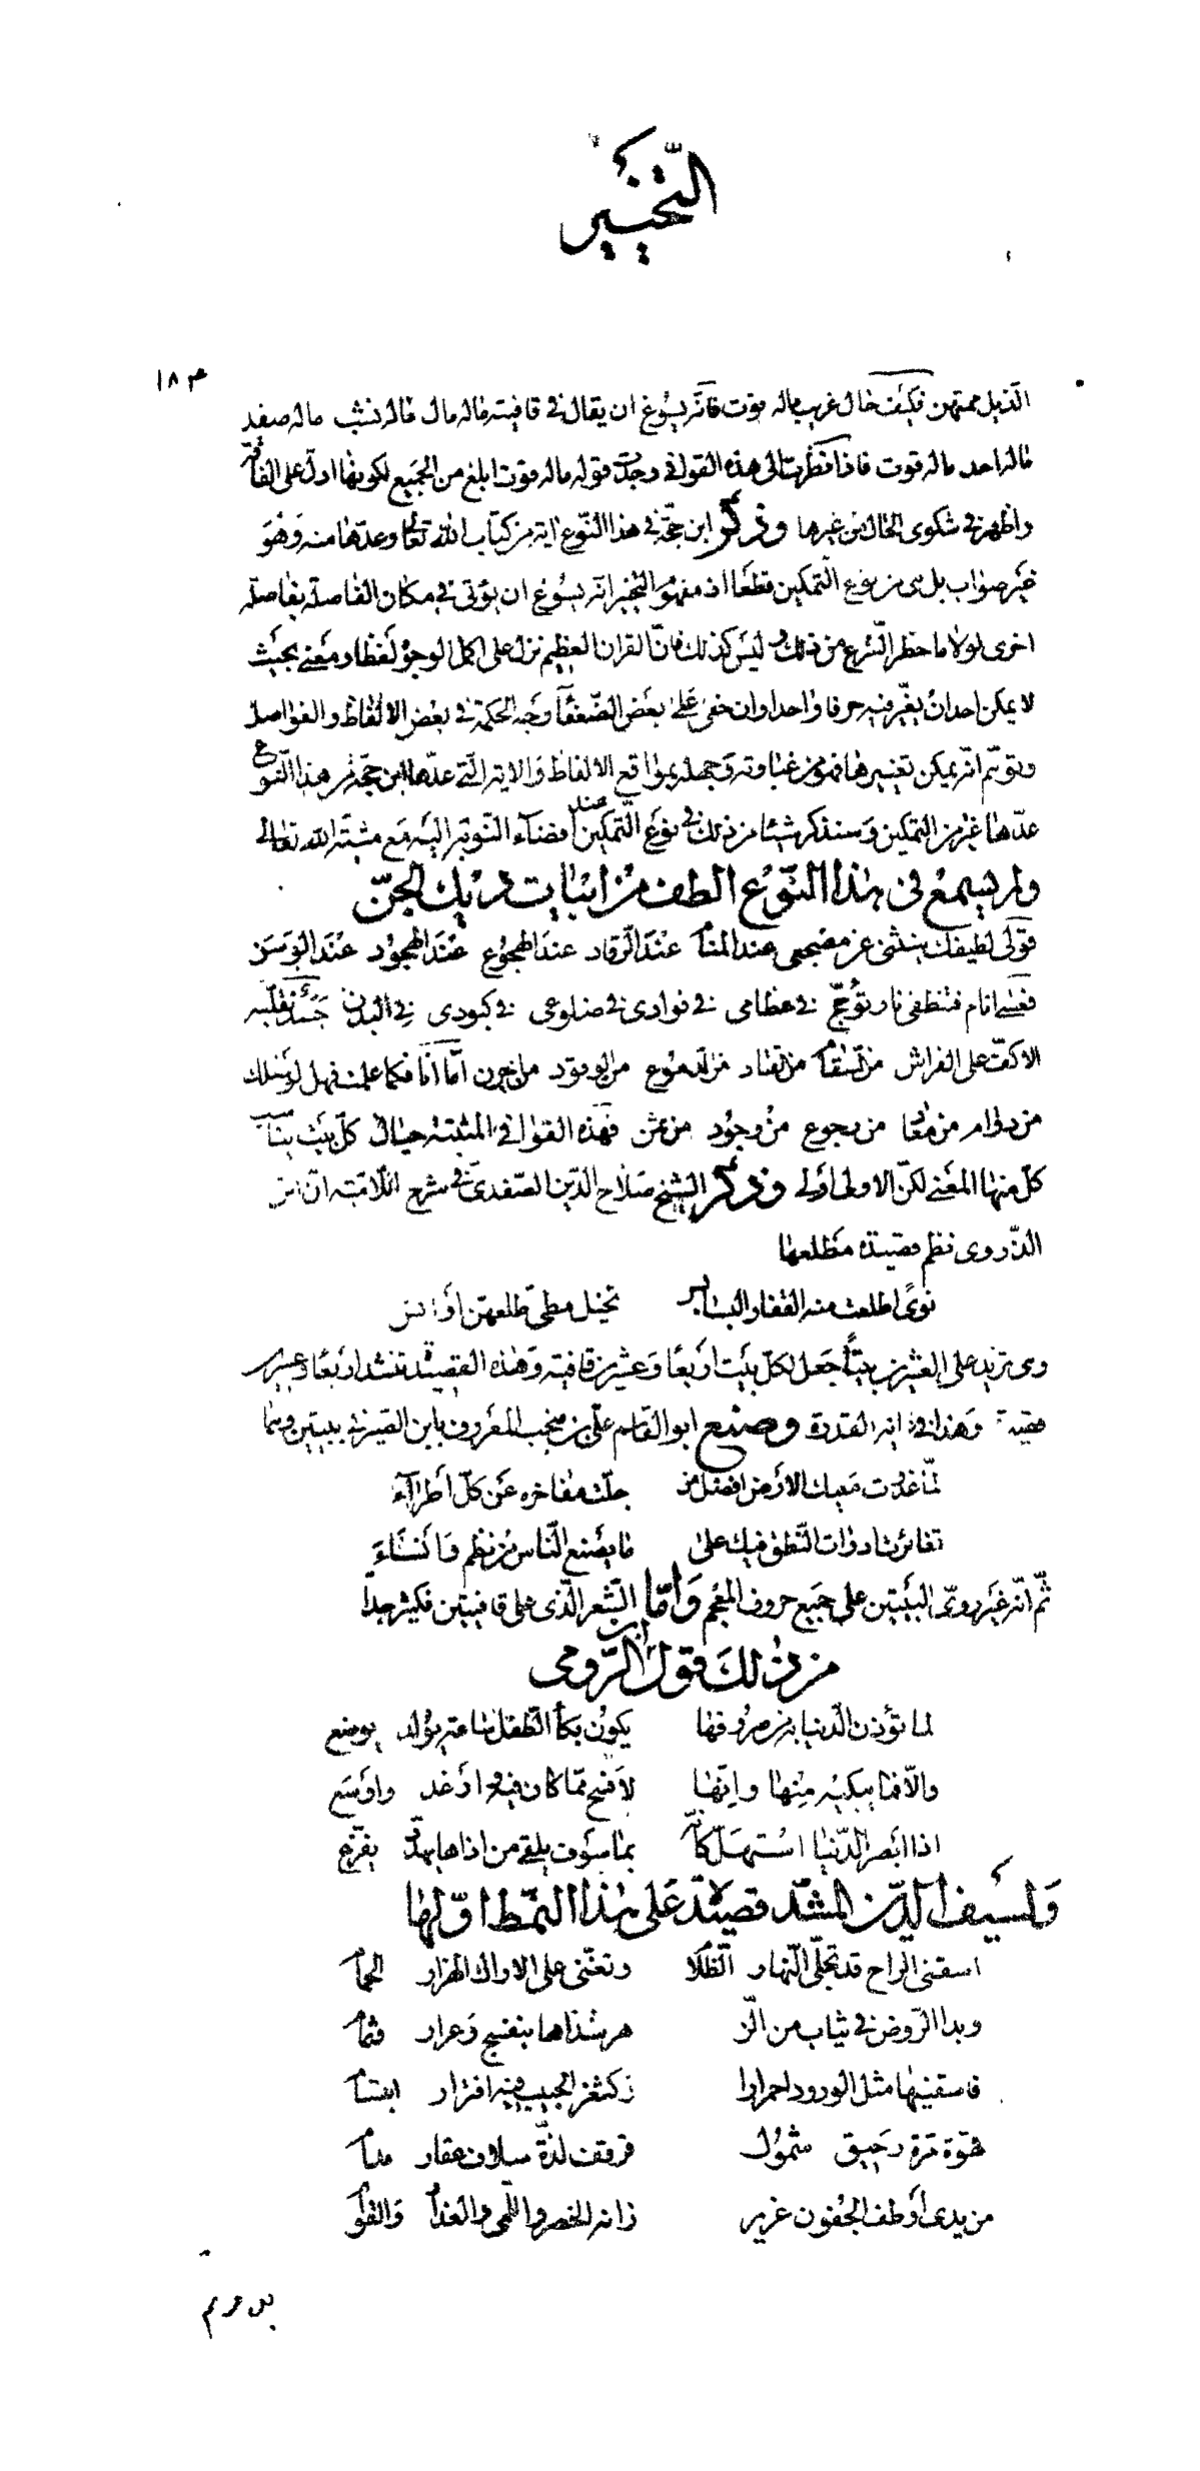 التخيير
١٨٣
الذيل ممتهن فكيف حال غريب ماله قوت فانه يسوغ ان يقال في قافيته ماله مال ماله نشب ماله صفد
ماله احد ماله قوت فاذا نظرت الى هذه القوافي وجدت قوله ماله قوت ابلغ من الجميع لكونها ادل على الفاقة
واظهر في شكوى الحال من غيرها وذكر ابن حجة في هذا النوع اية من كتاب الله تعالى وعدها منه وهو
غير صواب بل هي من نوع التمكين قطعا اذ مفهوم التخيير انه يسوغ ان يؤتى في مكان الفاصلة بفاصلة
اخرى لولا ما حظر الشرع من ذلك وليس كذلك فان القران العظيم نزل على اكمل الوجوه لفظا ومعنى بحيث
لا يمكن احدان يغير فيه حرفا واحدا وان خفى على بعض الضعفآء وجه الحكمة في بعض الالفاظ والفواصل
وتوهم انه يمكن تغييرها فهو من غباوته وجهله بمواقع الالفاظ والاية التي عدها ابن حجة من هذا النوع
عدها غيره من التمكين وسنذكر شيئا من ذلك في نوع التمكين عند افضآء النوبة اليه مع مشيته الله تعالى
ولم يسمع في هذا النوع الطف من ابيات ديك الجن
قولى لطيفك ينثنى عن مضجعى عند المنام عند الرقاد عند الهجوع عند الهجود عند الوسن
فعسى انام فتنطفى نار تؤجج في عظامى في فوادى في ضلوعى في كبودى في البدن جسد تقلبه
الاكف على الفراش من سقام من قتاد من دموع من وقود من حزن اما انا فكما علمت فهل لوصلك
من دوام من معاد من رجوع من وجود من ثمن فهذه القوافي المثبتة حيال كل بيت يناسب
كل منها المعنى لكن الاولى اولى وذكر الشيخ صلاح الدين الصفدى في شرح اللامية ان ابن
الذروى نظم قصيدة مطلعها
نوى اطلعت منه القفار البسابس نخيل مطى طلعهن اوانس
وهى تزيد على العشرين بيتا جعل لكل بيت اربعا وعشرين قافية وهذه القصيدة تنشد اربعا وعشرين
قصيدة وهذا في غاية القدرة وصنع ابو القاسم على بن منجب المعروف بابن الصيرفي بيتين وهما
لما غدوت مليك الارض افضل من جلت مفاخره عن كل اطرآء
تغايرت ادوات النطق فيك على ما يصنع الناس من نظم وانشاء
ثم انه غير روى البيتين على جميع حروف المعجم واما الشعر الذى على قافيتين فكثير جدا
من ذلك قول ابن الرومى
لما تؤذن الدنيا به من صروفها يكون بكآ الطفل ساعة يولد يوضع
والا فما يبكيه منها وانها لافسح مما كان فيه وارغد واوسع
اذا ابصر الدنيا استهل كانه بما سوف يلقى من اذاها يهدد يفزع
ولسيف الدين المشد قصيدة على هذا النمط اولها
اسقنى الراح قد تجلى النهار الظلام وتغنى على الاراك الهزار الحمام
وبدا الروض في ثياب من الز هر شذاها بنفسج وعرار وثمام
فاسقنيها مثل الورود احمرارا زكثغر الحبيب فيه افترار ابتسام
قهوة مزة رحيق شمول قرقف لذة سلاف عقار مدام
من يدى اوطف الجفون غرير زانه الخصر واللمى والعذار والقوام